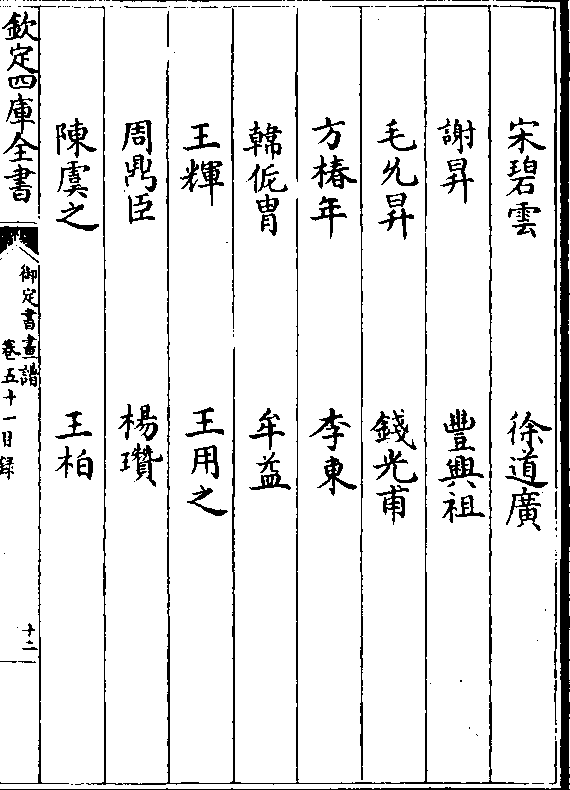 宋碧雲　徐道廣
謝昇　豐興祖
毛允昇　錢光甫
方椿年　李東
韓侂冑　牟益
王輝　王用之
周鼎臣　楊瓚
陳虞之　王柏
欽定四庫全書　御定書畫譜　卷五十一目録　十二